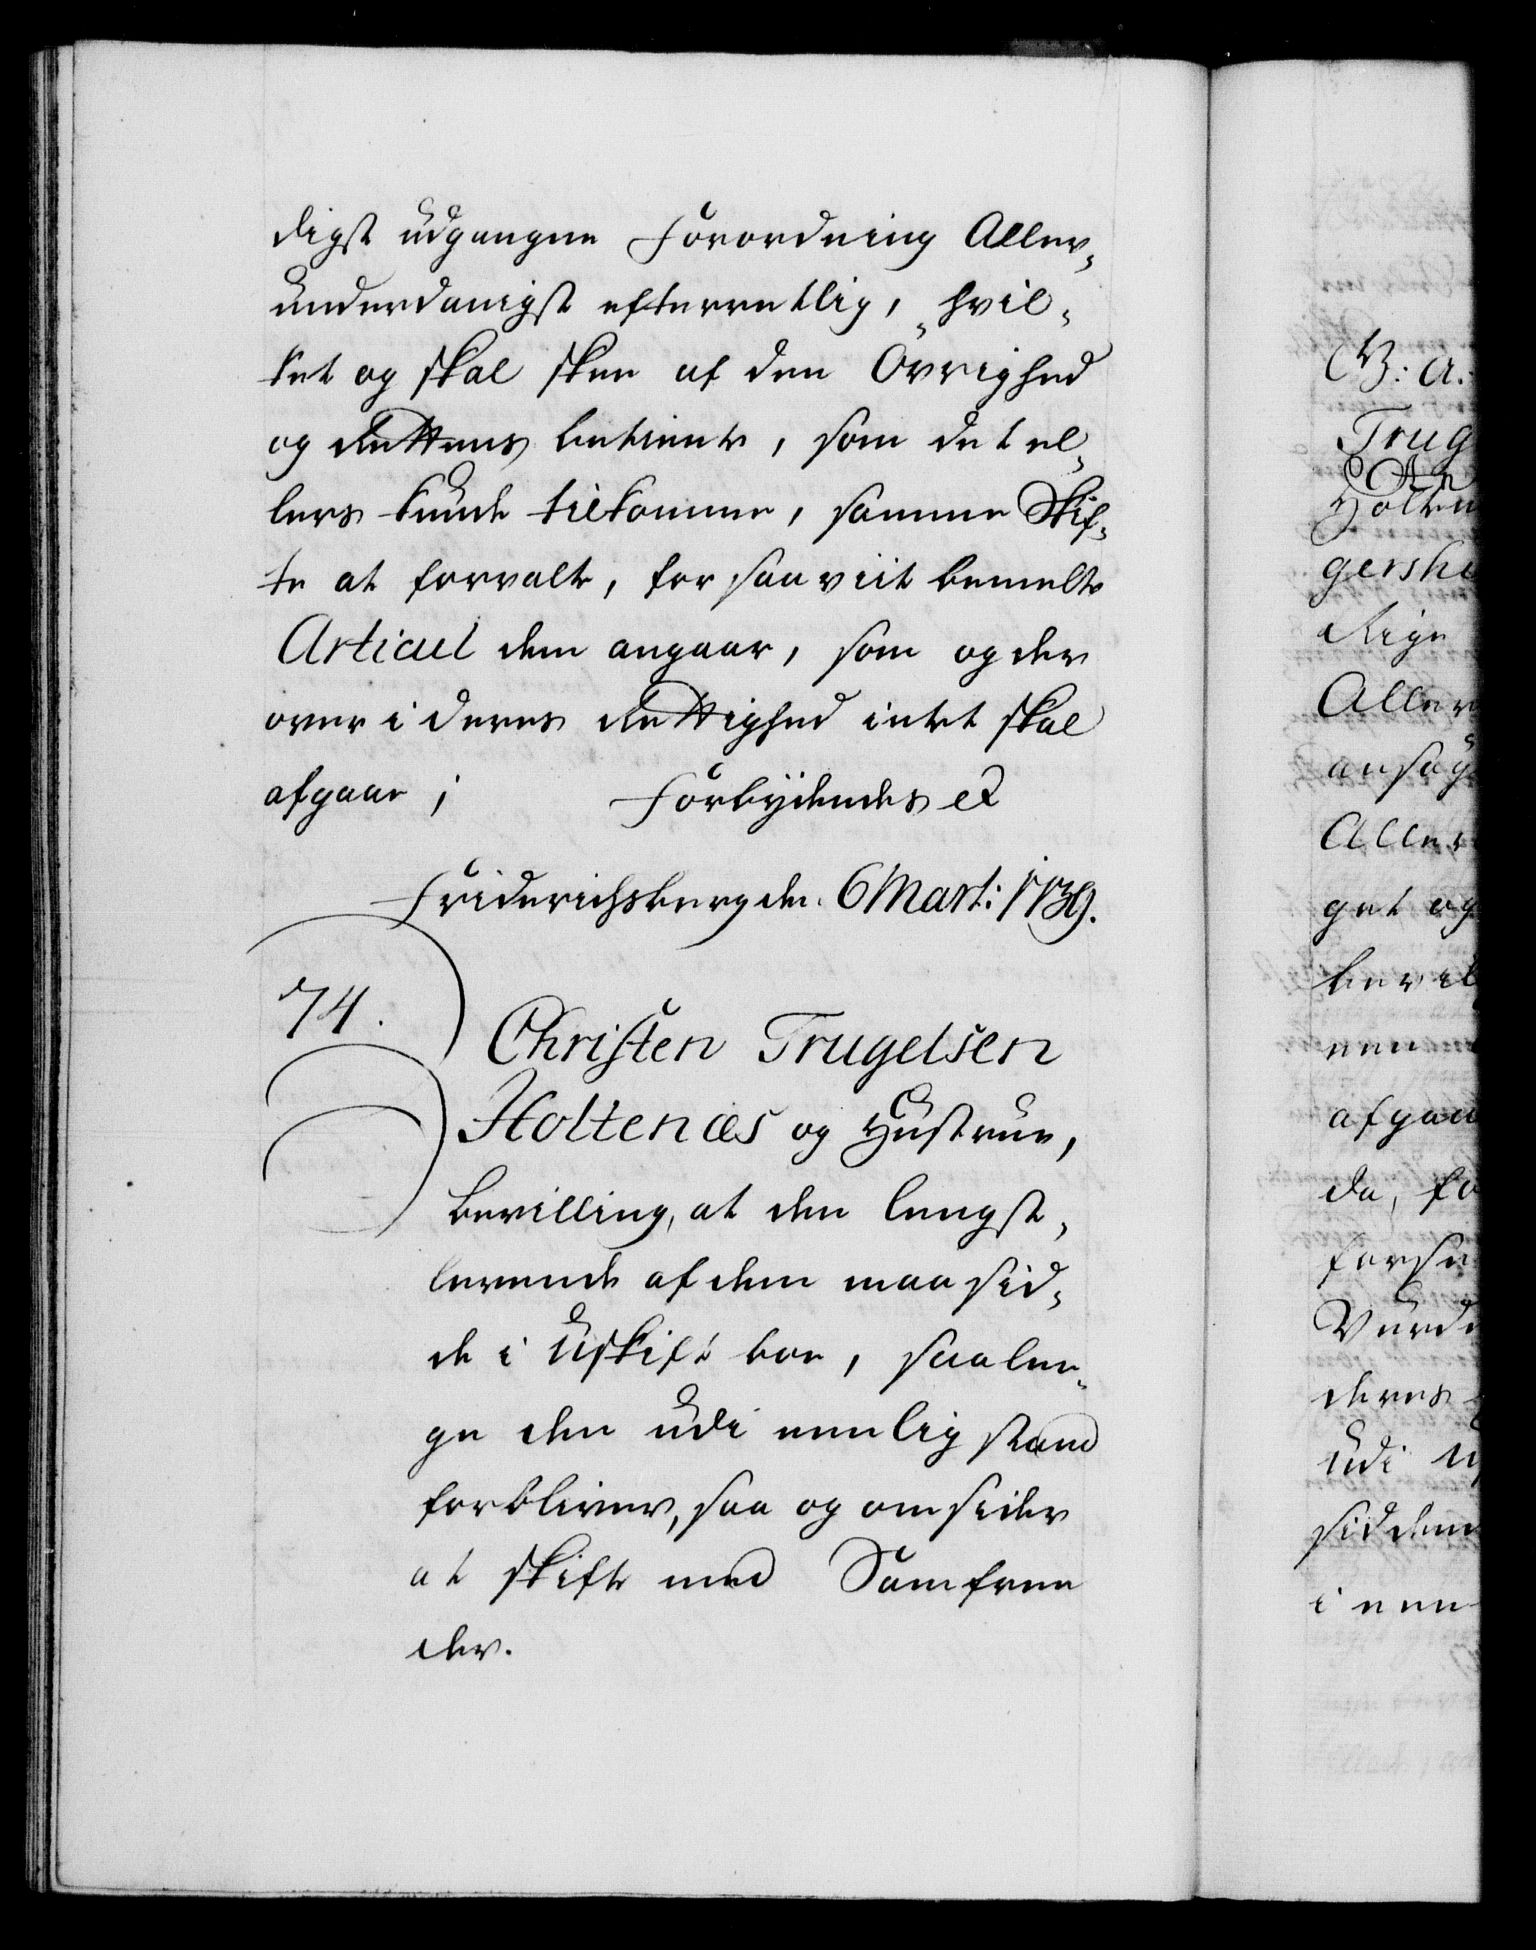 digst udgangne Forordning Aller,
underdanigst efterretlig, hvil,
ket og skal skee af den Övrighed
og Rettens betiente, som det el,
lers kunde tilkomme, samme Skif,
te at forvalte, for saa viit bemelte
Articul dem angaar, som og der
over i deres Rettighed intet skal
afgaae; Forbydendes et
Friderichsberg den 6 Mart: 1739.
74.
Christen Trugelsen
Holtenæs og Hustrue,
bevilling, at den lengst,
levende af dem maa sid,
de i Uskift boe, saalen,
ge den udi eenlig stand
forbliver, saa og omsider
at skifte med Samfreen
der.
V: A:
Trug
Holten
gershe
Rige
Aller
ansøg
Aller
get og
bevil
een
afgaa
da, fo
forse
Vurde
deres
udi U
sidden
i een